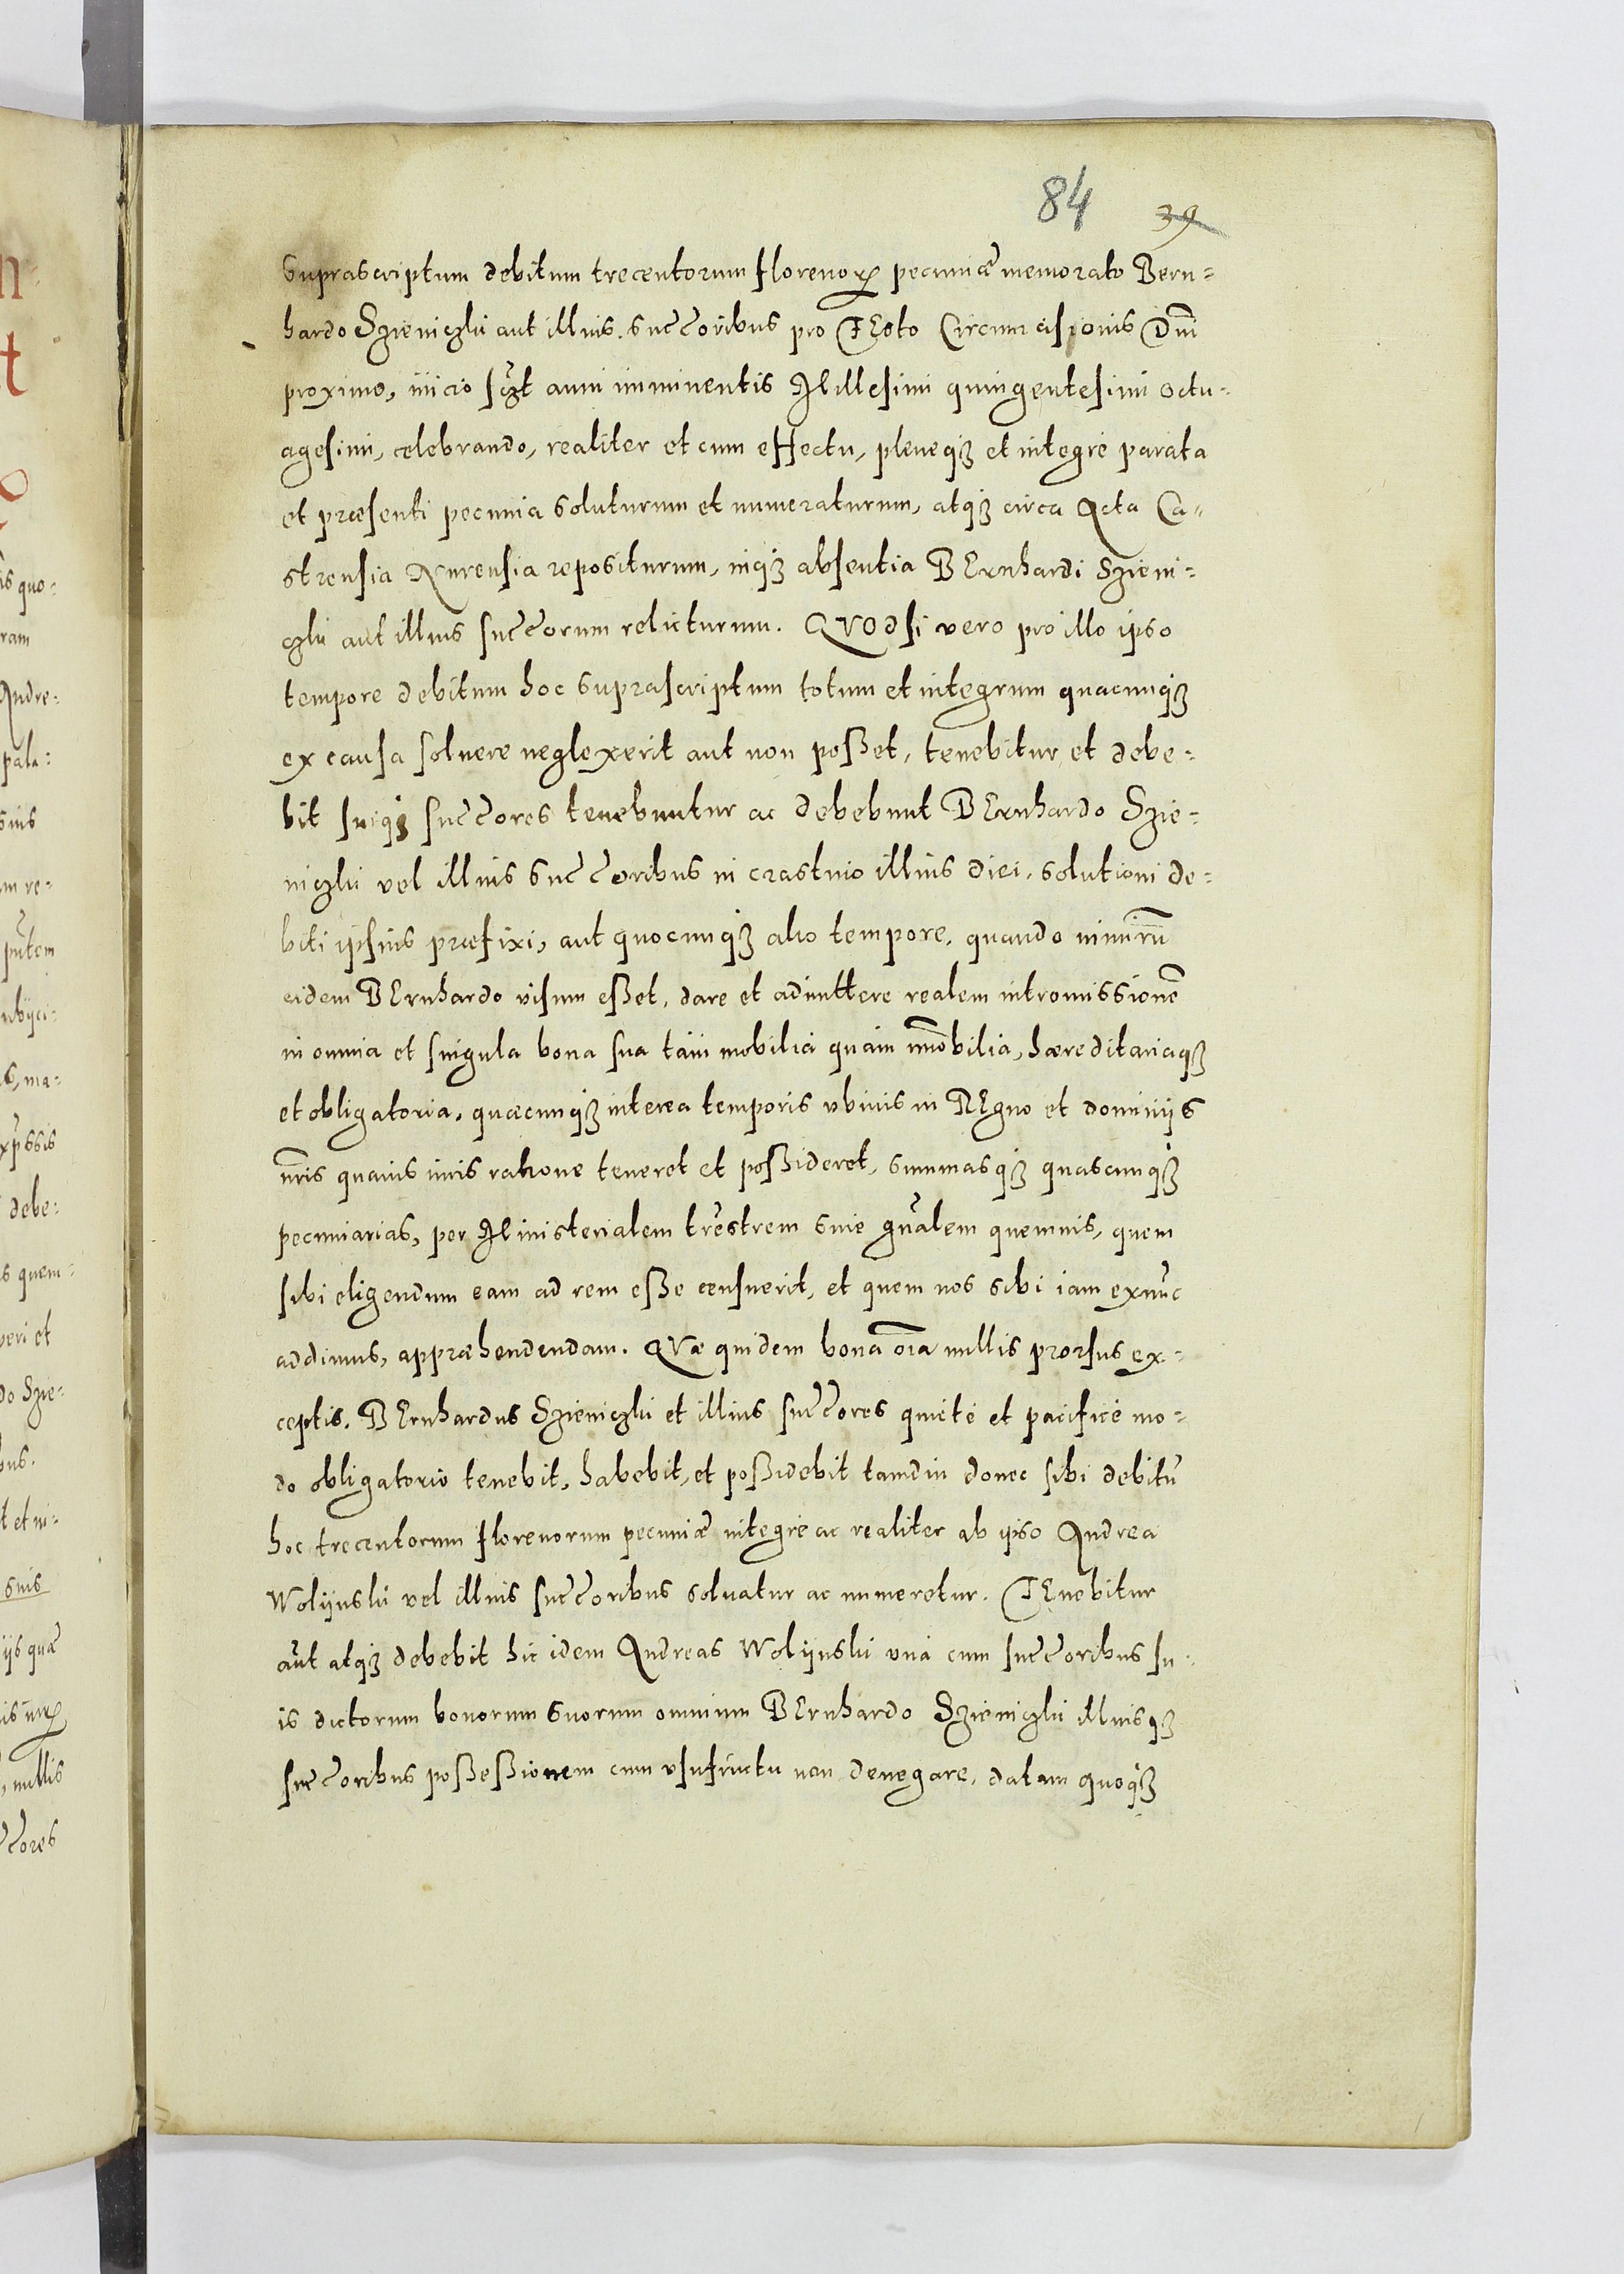 84 39
suprascriptum debitum trecentorum florenoꝝ pecuniæ memorato Bern=
hardo Szieniczki aut illius succ̃oribus pro FEsto Circumcisionis Dñi
proximo, inicio scȝt anni imminentis Millesimi quingentesimi octu=
agesimi, celebrando, realiter et cum effectu, pleneqȝ et integre parata
et præsenti pecunia soluturum et numeraturum, atqȝ circa Acta Ca=
strensia Nurensia repositurum, inqȝ absentia BErnhardi Szieni=
czki aut illius succ̃orum relicturum. QVOdsi vero pro illo ipso
tempore debitum hoc suprascriptum totum et integrum quacunqȝ
ex causa soluere neglexerit aut non posset, tenebitur et debe=
bit suiqȝ succ̃ores tenebuntur ac debebunt BErnhardo Szie=
niczki vel illius succ̃oribus in crastino illius diei, solutioni de=
biti ipsius præfixi, aut quocunqȝ alio tempore, quando nimirũ
eidem BErnhardo visum esset, dare et admittere realem intromissionẽ
in omnia et singula bona sua tam mobilia quàm im̃obilia, hæreditariaqȝ
et obligatoria, quæcunqȝ interea temporis vbiuis in REgno et dominijs
nr̃is quauis iuris ratione teneret et possideret, summasqȝ quascunqȝ
pecuniarias, per Ministerialem trẽstrem siue gñalem quemuis, quem
sibi eligendum eam ad rem esse censuerit, et quem nos sibi iam exnũc
addimus, appræhendendam. QVæ quidem bona oĩa nullis prorsus ex=
ceptis, BErnhardus Szieniczki et illius succ̃ores quietè et pacificè mo=
do obligatorio tenebit, habebit, et possidebit tamdiu donec sibi debitũ
hoc trecentorum florenorum pecuniæ integrè ac realiter ab ipso Andrea
Wolijnski vel illius succ̃oribus soluatur ac numeretur. TEnebitur
aũt atqȝ debebit hic idem Andreas Wolijnski vnà cum succ̃oribus su=
is dictorum bonorum suorum omnium BErnhardo Szieniczki illiusqȝ
succ̃oribus possessionem cum vsufructu non denegare, datam quoqȝ